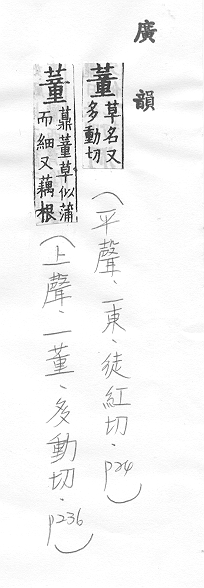 廣韻
董草名又多動切
（平聲．一東．徒紅切．p24）
董薡董草似蒲而細又藕根
（上聲．一董．多動切．p236）